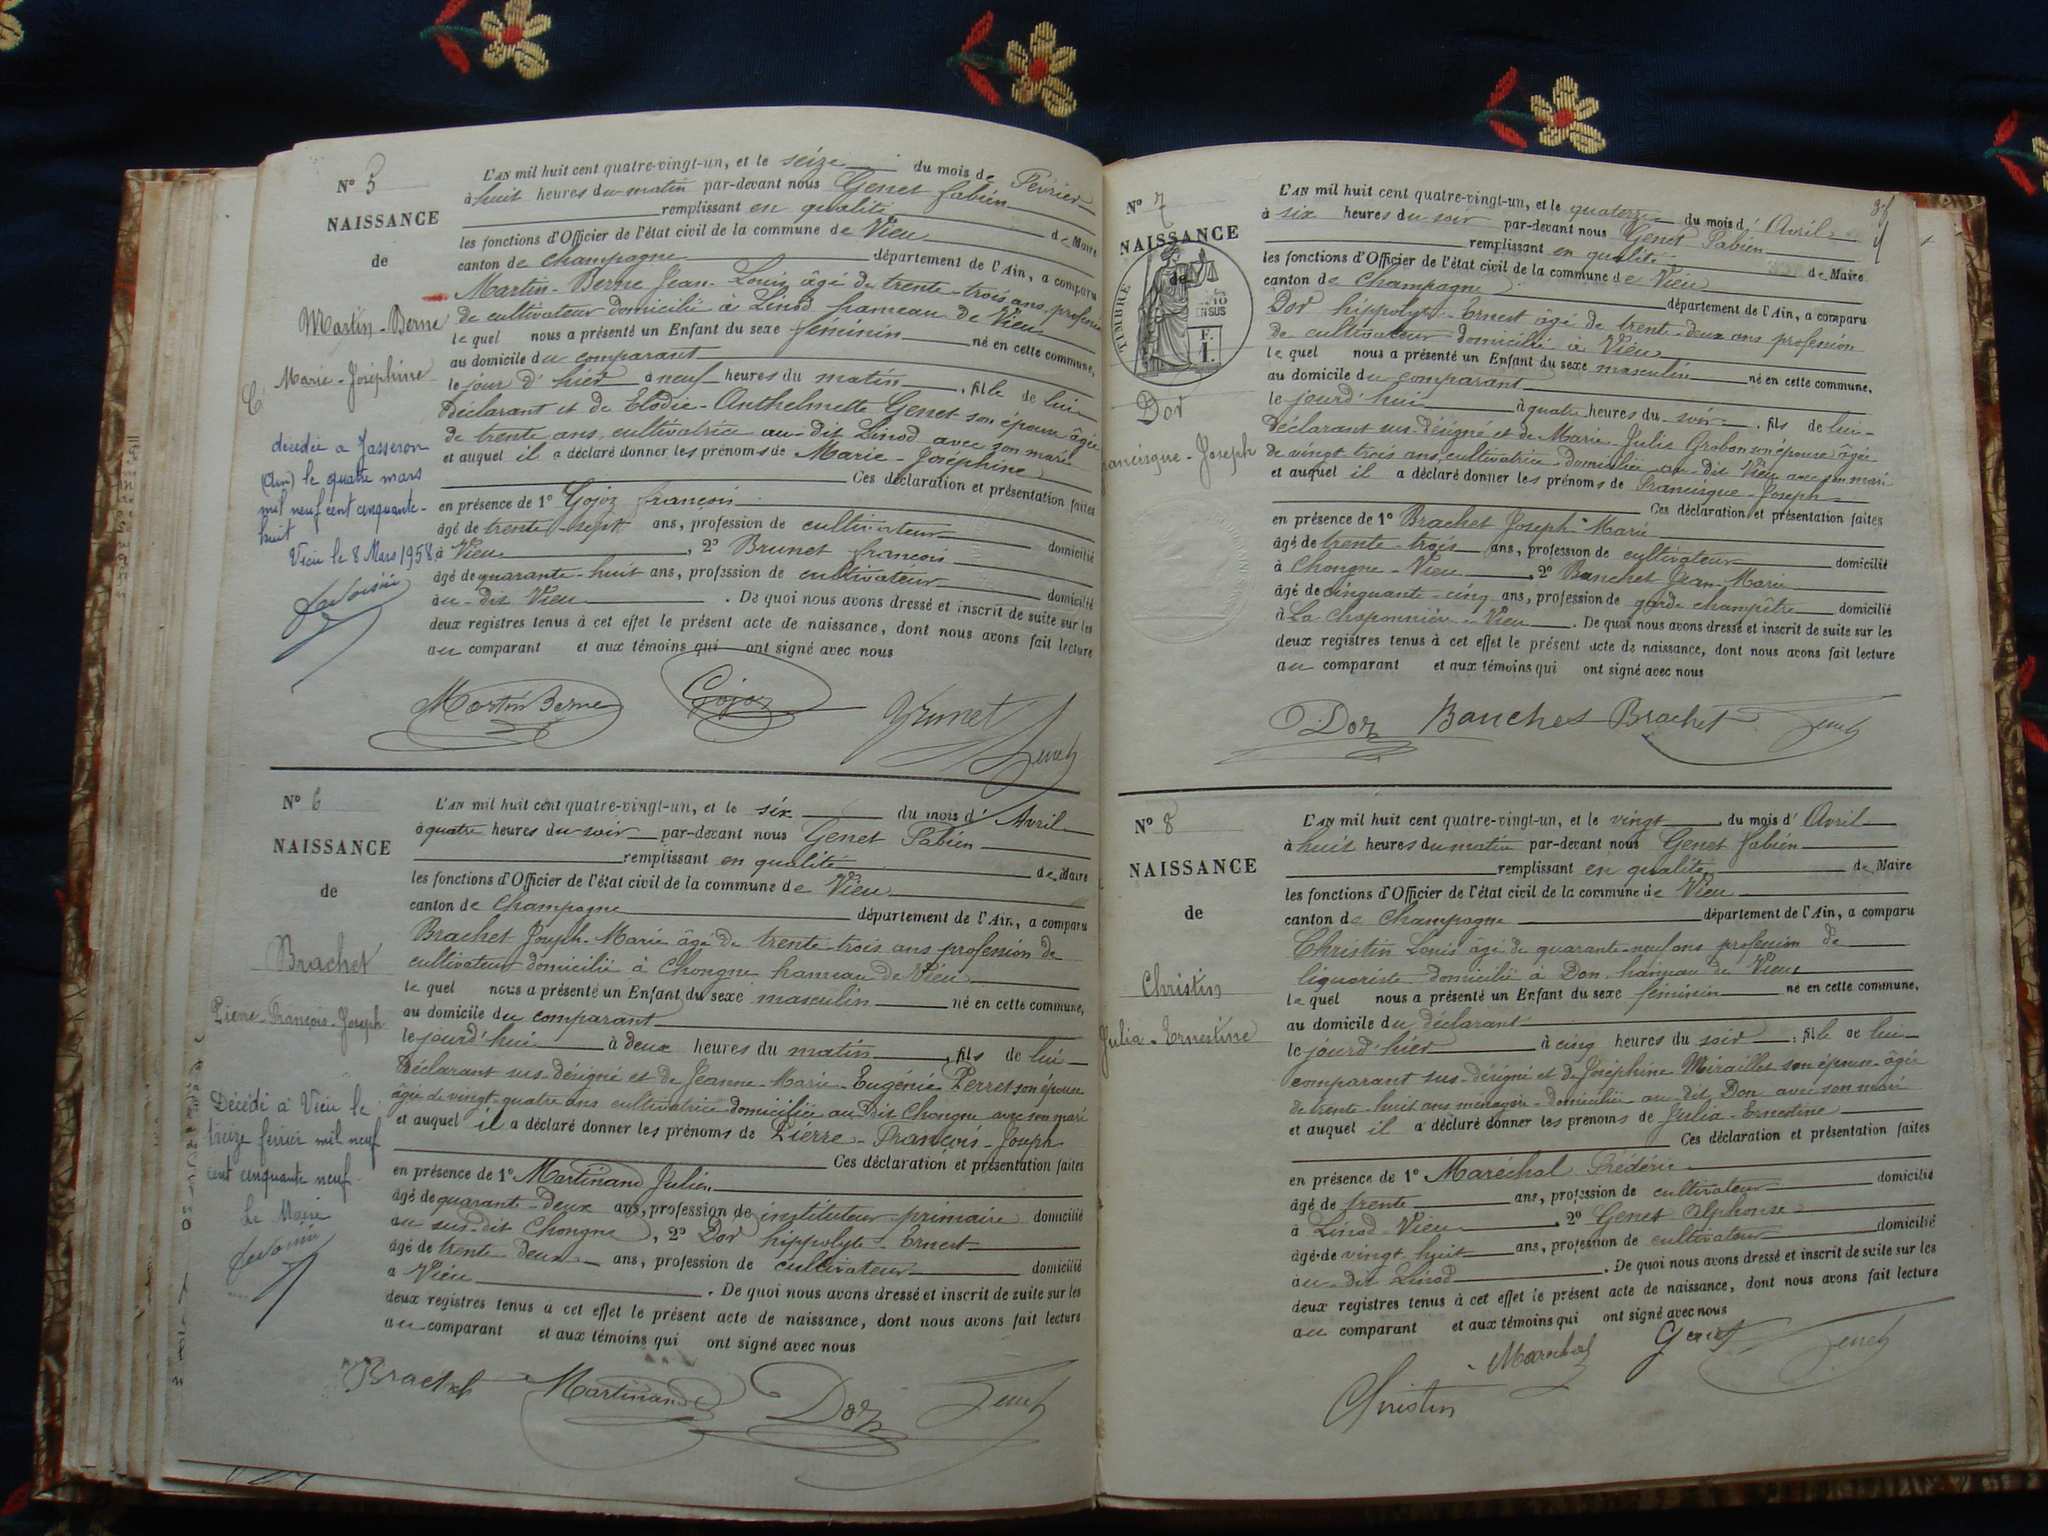 N° 5
NAISSANCE
de
Martin-Berne
Marie-Joséphine
décédée à Jasseron
(Ain) le quatre mars
mil neuf cent cinquante-
huit
Vieu le 8 Mars 1958
L'AN mil huit cent quatre-vingt-un, et le seize du mois de Février
à huit heures du matin par-devant nous Genet fabien
remplissant en qualité de Maire
les fonctions d'Officier de l'état civil de la commune de Vieu
canton de Champagne département de l'Ain, a comparu
Martin-Berne Jean-Louis âgé de trente-trois ans profession
de cultivateur domicilié à Linod hameau de Vieu
le quel nous a présenté un Enfant du sexe féminin né en cette commune,
au domicile du comparant
le jour d'hier à neuf heures du matin, fille de lui
déclarant et de Elodie-Anthelmette Genet son épouse âgée
de trente ans cultivatrice au dit Linod avec son mari
et auquel il a déclaré donner les prénoms de Marie-Joséphine
Ces déclaration et présentation faites
en présence de 1° Gojoz françois
âgé de trente-sept ans, profession de cultivateur domicilié
à Vieu, 2° Brunet françois
âgé de quarante-huit ans, profession de cultivateur domicilié
au-dit Vieu. De quoi nous avons dressé et inscrit de suite sur les
deux registres tenus à cet effet le présent acte de naissance, dont nous avons fait lecture
au comparant et aux témoins qui ont signé avec nous
Martin Berne Gojoz Brunet
Genet
N° 6
NAISSANCE
de
Brachet
Pierre-François-Joseph
Décédé à Vieu le
treize février mil neuf
cent cinquante neuf
Le Maire
L'AN mil huit cent quatre-vingt-un, et le six du mois d'Avril
à quatre heures du soir par-devant nous Genet Fabien
remplissant en qualité de Maire
les fonctions d'Officier de l'état civil de la commune de Vieu
canton de Champagne département de l'Ain, a comparu
Brachet Joseph-Marie âgé de trente-trois ans profession de
cultivateur domicilié à Chongne hameau de Vieu
le quel nous a présenté un Enfant du sexe masculin né en cette commune,
au domicile du comparant
le jourd'hui à deux heures du matin, fils de lui
déclarant sus-désigné et de Jeanne-Marie-Eugénie Perret son épouse
âgée de vingt-quatre ans cultivatrice domiciliée au dit Chongne avec son mari
et auquel il a déclaré donner les prénoms de Pierre-François-Joseph
Ces déclaration et présentation faites
en présence de 1° Martinand Julien
âgé de quarante-deux ans, profession de instituteur primaire domicilié
au sus-dit Chongne, 2° Dor hippolyte-Ernest
âgé de trente deux ans, profession de cultivateur domicilié
à Vieu. De quoi nous avons dressé et inscrit de suite sur les
deux registres tenus à cet effet le présent acte de naissance, dont nous avons fait lecture
au comparant et aux témoins qui ont signé avec nous
Brachet Martinand Dor Genet
N° 7
NAISSANCE
de
TIMBRE
Dor
Francisque-Joseph
L'AN mil huit cent quatre-vingt-un, et le quatorze du mois d'Avril
à six heures du soir par-devant nous Genet Fabien
remplissant en qualité de Maire
les fonctions d'Officier de l'état civil de la commune de Vieu
canton de Champagne département de l'Ain, a comparu
Dor hippolyte-Ernest âgé de trente-deux ans profession
de cultivateur domicilié à Vieu
le quel nous a présenté un Enfant du sexe masculin né en cette commune,
au domicile du comparant
le jourd'hui à quatre heures du soir, fils de lui
déclarant sus-désigné et de Marie Julie Grobon son épouse âgée
de vingt trois ans cultivatrice domiciliée au-dit Vieu avec son mari
et auquel il a déclaré donner les prénoms de Francisque-Joseph
Ces déclaration et présentation faites
en présence de 1° Brachet Joseph-Marie
âgé de trente-trois ans, profession de cultivateur domicilié
à Chongne-Vieu, 2° Banchet Jean-Marie
âgé de cinquante-cinq ans, profession de garde champêtre domicilié
à La Chaponnière-Vieu. De quoi nous avons dressé et inscrit de suite sur les
deux registres tenus à cet effet le présent acte de naissance, dont nous avons fait lecture
au comparant et aux témoins qui ont signé avec nous
Dor Banchet Brachet Genet
N° 8
NAISSANCE
de
Christin
Julia-Ernestine
L'AN mil huit cent quatre-vingt-un, et le vingt du mois d'Avril
à huit heures du matin par-devant nous Genet fabien
remplissant en qualité de Maire
les fonctions d'Officier de l'état civil de la commune de Vieu
canton de Champagne département de l'Ain, a comparu
Christin Louis âgé de quarante-neuf ans profession de
liquoriste domicilié à Don hameau de Vieu
le quel nous a présenté un Enfant du sexe féminin né en cette commune,
au domicile du déclarant
le jourd'hier à cinq heures du soir, fille de lui
comparant sus-désigné et de Joséphine Miraillet son épouse âgée
de trente-huit ans ménagère domiciliée au-dit Don avec son mari
et auquel il a déclaré donner les prénoms de Julia-Ernestine
Ces déclaration et présentation faites
en présence de 1° Maréchal Frédéric
âgé de trente ans, profession de cultivateur domicilié
à Linod-Vieu, 2° Genet Alphonse
âgé de vingt-huit ans, profession de cultivateur domicilié
au-dit Linod. De quoi nous avons dressé et inscrit de suite sur les
deux registres tenus à cet effet le présent acte de naissance, dont nous avons fait lecture
au comparant et aux témoins qui ont signé avec nous
Marechal Genet Genet
Christin